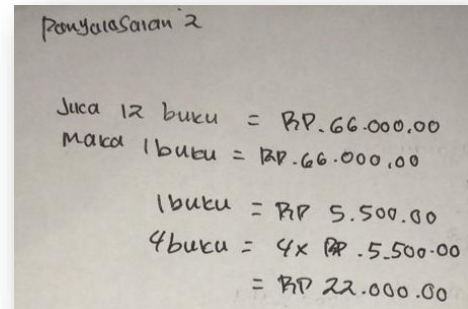 Penyalasaian 2
Juca 12 buku = RP.66.000.00
Maka 1 buku = RP.66.000,00
1 buku = RP 5.500.00
4 buku = 4x RP .5.500.00
= RP 22.000.00